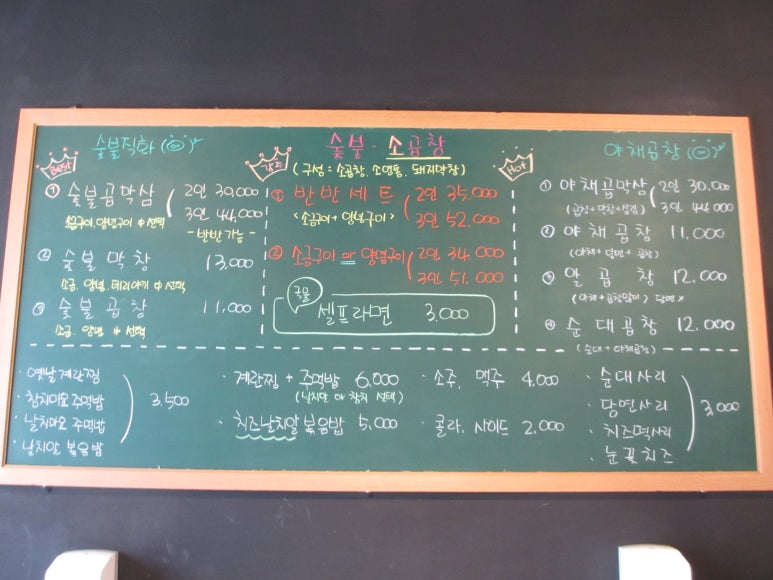 숯불직화
BEST
① 숯불곱막삼 2인 30,000
3인 44,000
소금구이, 양념구이 中 선택
- 반반 가능 -
② 숯불막창 13,000
소금, 양념, 데리야끼 中 선택
③ 숯불곱창 11,000
소금, 양념 中 선택
숯불·소곱창
강추
(구성 = 소곱창, 소염통, 돼지막창)
① 반반세트 2인 35,000
3인 52,000
<소금구이 + 양념구이>
② 소금구이 or 양념구이 2인 34,000
3인 51,000
국물
셀프라면 3,000
야채곱창
HOT
① 야채곱막삼 2인 30,000
3인 44,000
(곱창+막창+삼겹)
② 야채곱창 11,000
(야채+당면+곱창)
③ 알곱창 12,000
(야채+곱창많이) 당면 x
④ 순대곱창 12,000
(순대+야채곱창)
· 옛날계란찜
· 참치마요 주먹밥
· 날치마요 주먹밥
· 날치알 볶음밥
3,500
· 계란찜 + 주먹밥 6,000
(날치알 or 참치 선택)
· 치즈날치알볶음밥 5,000
· 소주, 맥주 4,000
· 콜라, 사이다 2,000
· 순대사리
· 당면사리
· 치즈떡사리
· 눈꽃치즈
3,000